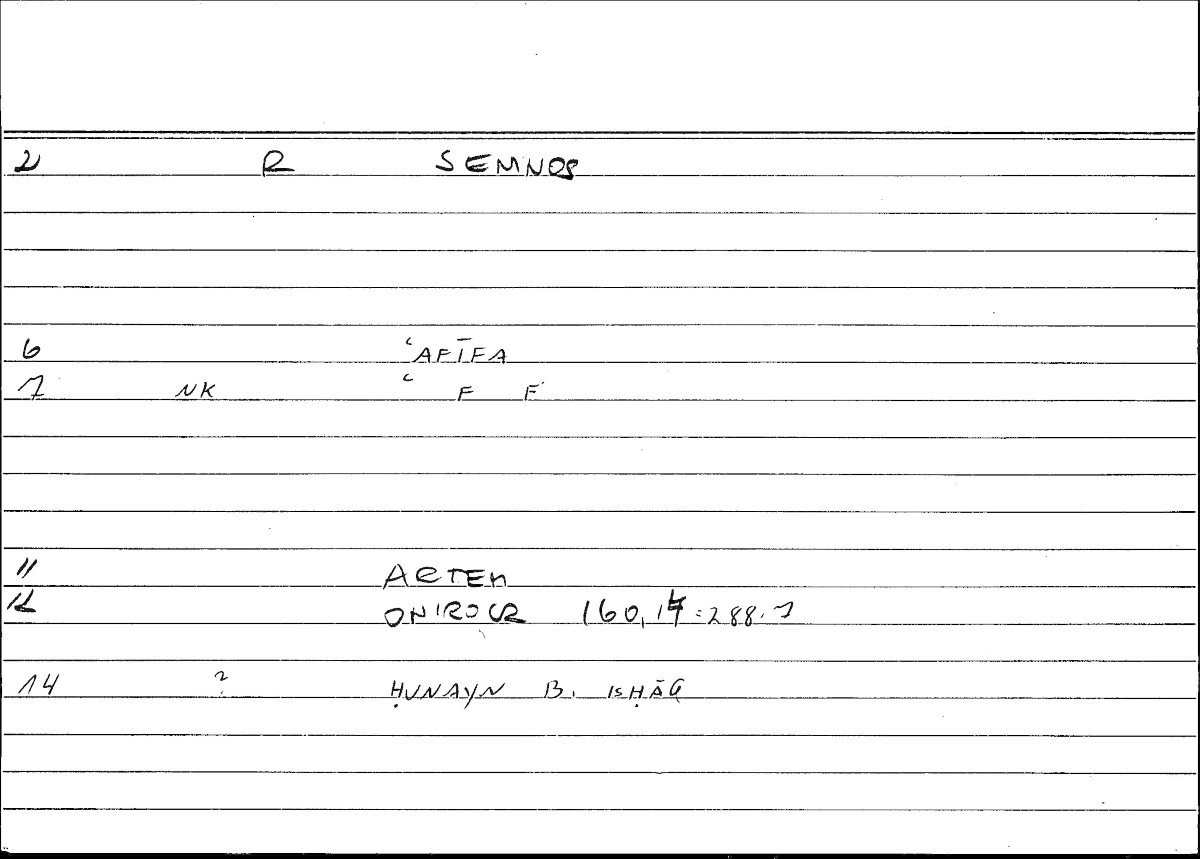 2 R SEMNOS
6 ʿAFĪFA
7 NK ʿ F F
11 ARTEM
12 ONIROCR 160,14=288.7
14 ? ḤUNAYN B. ISḤĀQ